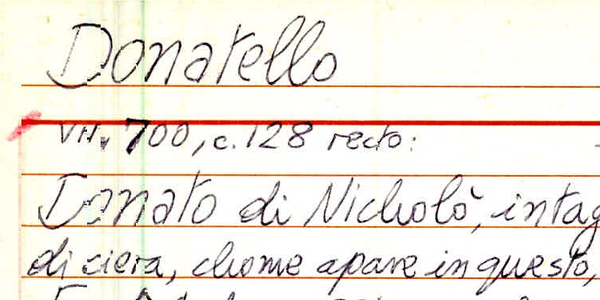 Donatello
VII. 700, c. 128 recto:
Donato di Nicholò, intag
di ciera, chome apare in questo,